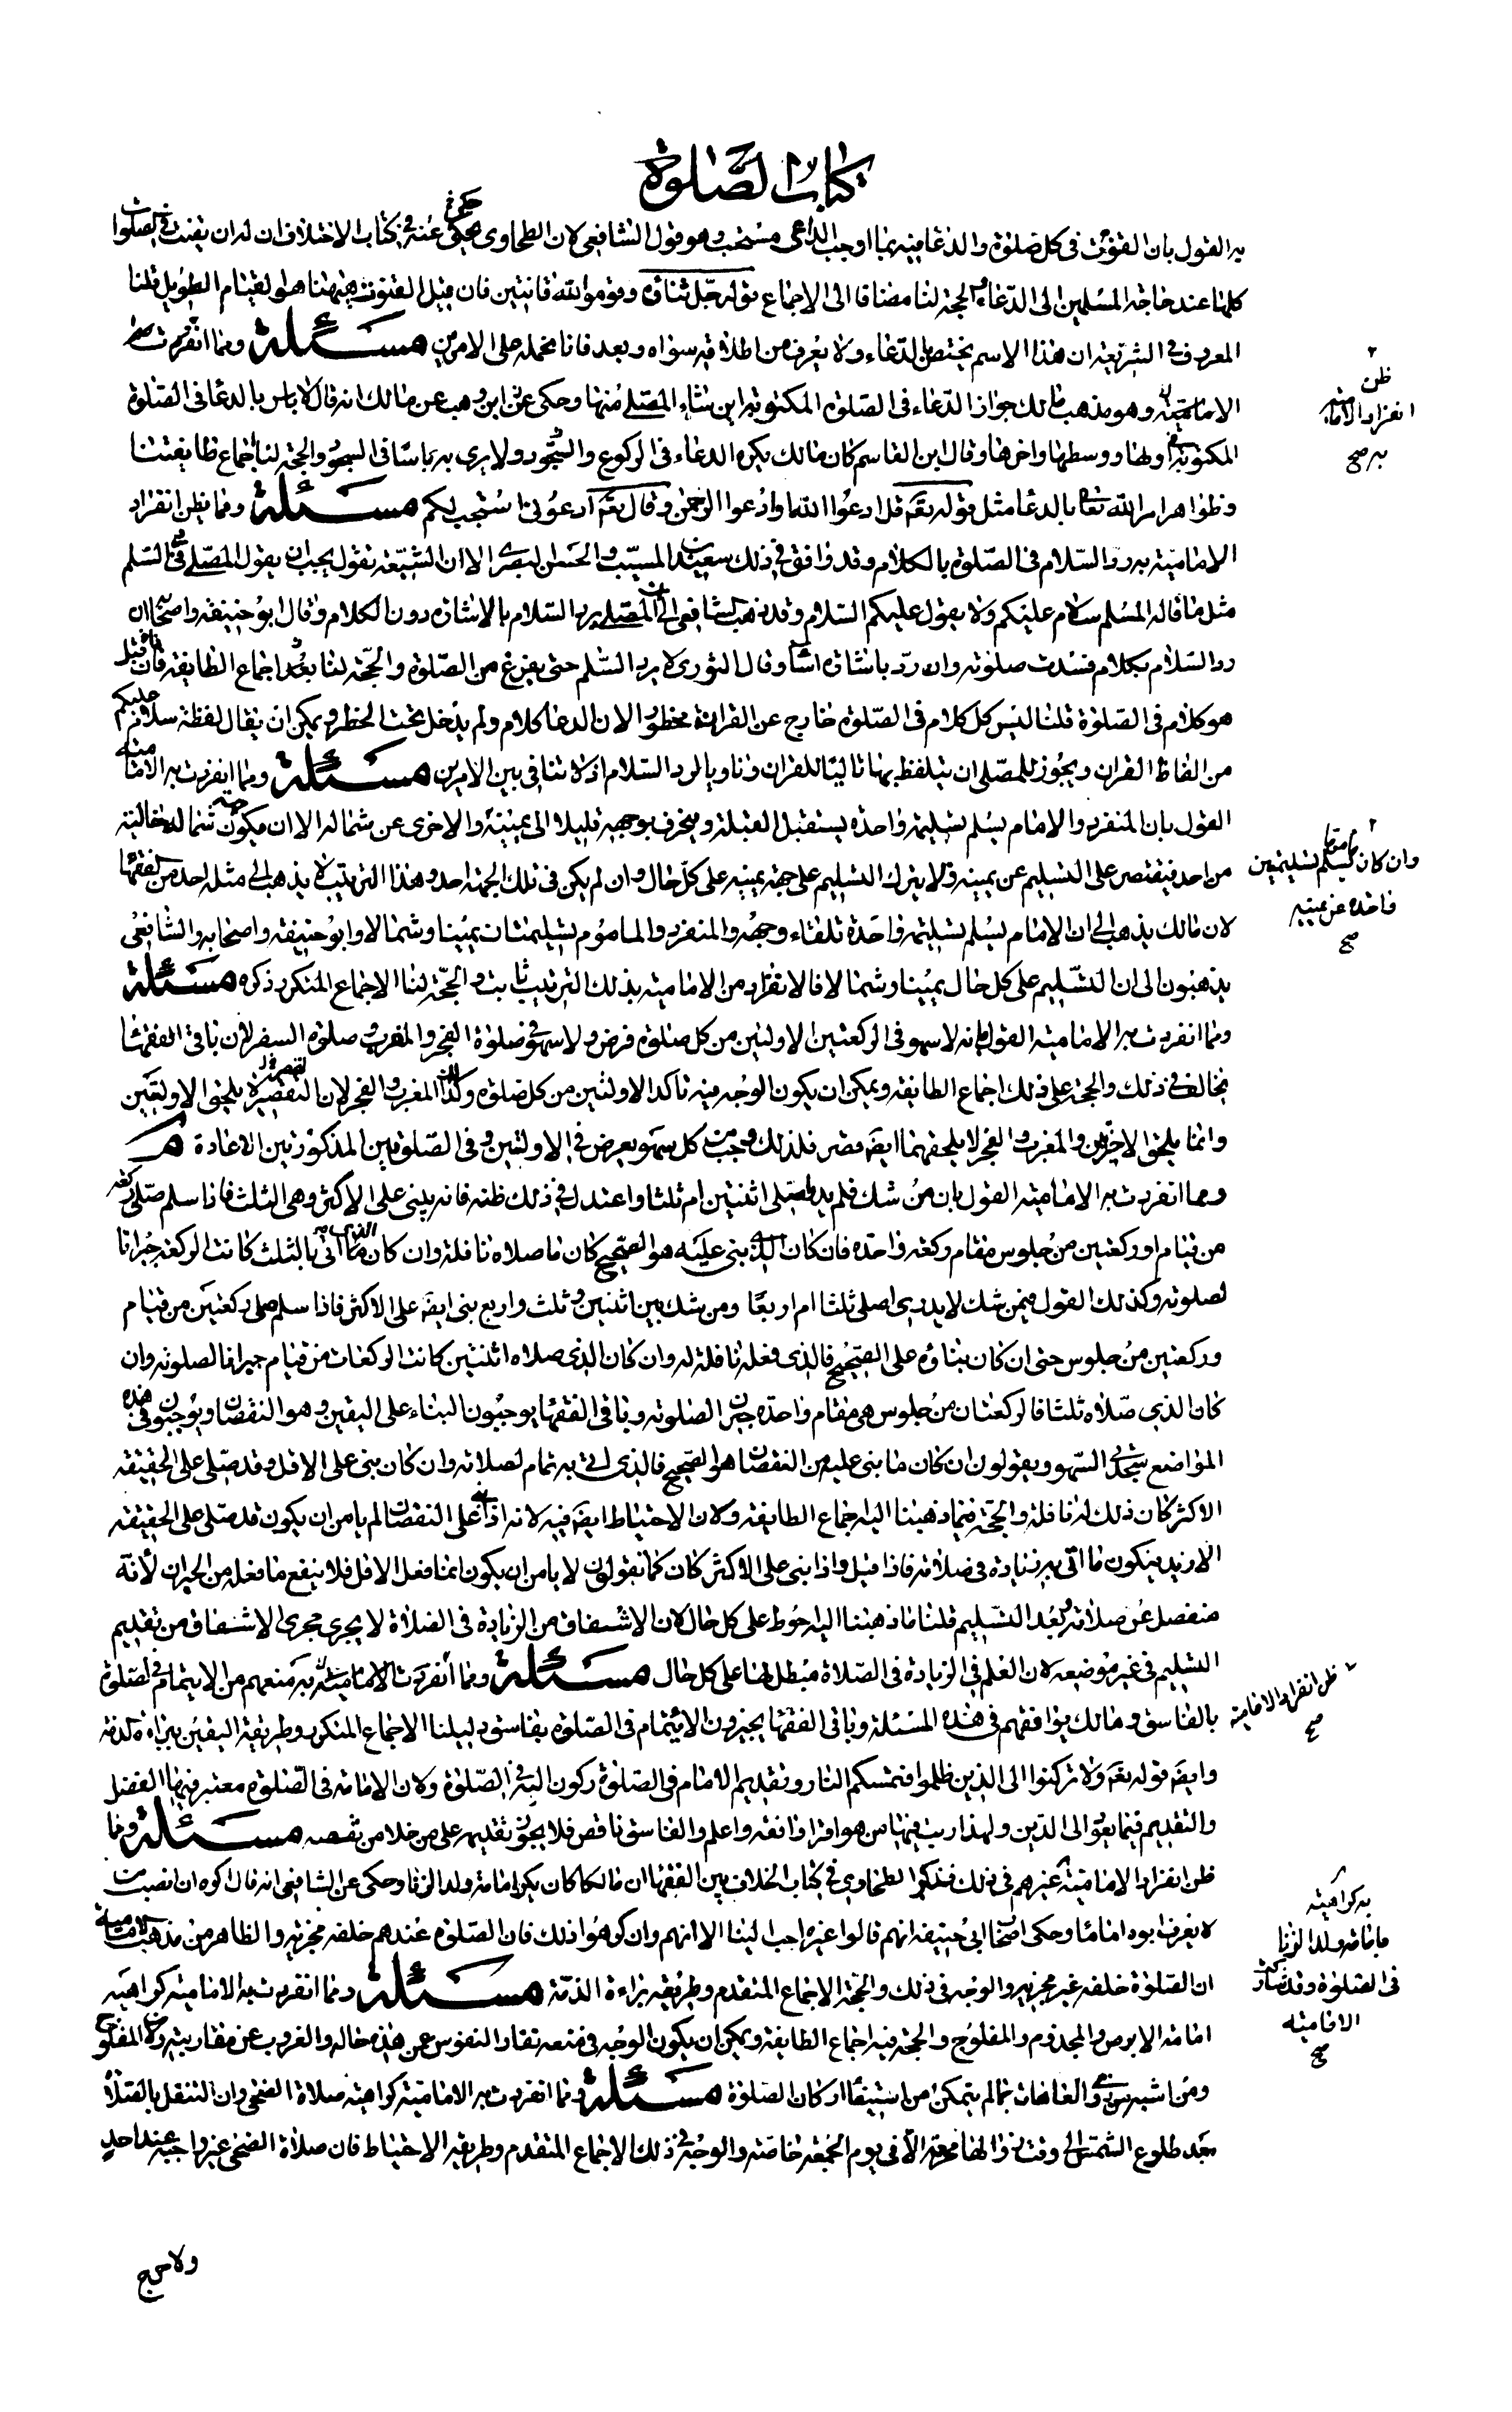 كتاب الصلوة
به القول بان القنوت فى كل صلوة والدعا فيه بما احب الداعى مستحب وهو قول الشافعى لان الطحاوى حكى عنه فى كتاب الاختلاف ان له ان يقنت فى الصلوات
كلها عند حاجة المسلمين الى الدعاء والحجة لنا مضافا الى الاجماع قوله جل ثناؤه وقوموا لله قانتين فان قيل القنوت ههنا هو القيام الطويل قلنا
المعروف فى الشريعة ان هذا الاسم يختص الدعاء ولا يعرف من اطلاقه سواه وبعد فانا نحمله على الامرين مسئلة ومما انفردت
الامامية به وهو مذهب مالك جواز الدعاء فى الصلوة المكتوبة اين شاء المصلى منها وحكى عن ابن وهب عن مالك انه قال لا باس بالدعا فى الصلوة
المكتوبة فى اولها ووسطها واخرها وقال ابن القاسم كان مالك يكره الدعاء فى الركوع والسجود ولا يرى به باسا فى السجود والحجة لنا اجماع طايفتنا
وظواهر امر الله تعالى بالدعا مثل قوله تعم قل ادعوا الله او ادعوا الرحمن وقال تعم ادعونى استجب لكم مسئلة ومما يظن انفراد
الامامية به رد السلام فى الصلوة بالكلام وقد وافق فى ذلك سعيد بن المسيب والحسن البصرى الا ان الشيعة تقول يجب ان يقول المصلى فى السلم
مثل ما قاله المسلم سلام عليكم ولا يقول عليكم السلام وقد ذهب الشافعى الى ان المصلى يرد السلام بالاشارة دون الكلام وقال ابو حنيفة واصحابه ان
رد السلام بكلام فسدت صلوته وان رد باشارة اساء وقال الثورى لا يرد السلم حتى يفرغ من الصلوة والحجة لنا بعد اجماع الطايفة فان قيل
هو كلام فى الصلوة قلنا ليس كل كلام فى الصلوة خارج عن القرائة محظورا لان الدعا كلام ولم يدخل تحت الحظر ويمكن ان يقال لفظة سلام عليكم
من الفاظ القران ويجوز للمصلى ان يتلفظ بها تاليا للقران وناويا لرد السلام اذ لا تنافى بين الامرين مسئلة ومما انفردت به الامامية
القول بان المنفرد والامام يسلم تسليمة واحدة يستقبل القبلة وينحرف بوجهه قليلا الى يمينه والاخرى عن شماله الا ان يكون جهة شماله خالية
من احد فيقتصر على التسليم عن يمينه ولا يترك التسليم على جهة يمينه على كل حال وان لم يكن فى تلك الجهة احد وهذا الترتيب لا يذهب الى مثله احد من الفقها
لان مالك يذهب الى ان الامام يسلم تسليمة واحدة تلقاء وجهه والمنفرد والماموم تسليمتان يمينا وشمالا وابو حنيفة واصحابه والشافعى
يذهبون الى ان التسليم على كل حال يمينا وشمالا فالانفراد من الامامية بذلك الترتيب ثابت والحجة لنا الاجماع المتكرر ذكره مسئلة
ومما انفردت به الامامية القول بانه لا سهو فى الركعتين الاولتين من كل صلوة فرض ولا سهو فى صلوة الفجر والمغرب وصلوة السفر لان باقى الفقها
يخالف فى ذلك والحجة على ذلك اجماع الطايفة ويمكن ان يكون الوجه فيه تاكد الاولتين من كل صلوة وكذا المغرب والفجر لان التقصير لا يلحق الاولتين
وانما يلحق الاخرتين والمغرب والفجر لا يلحقهما ايضا قصر فلذلك وجب من كل سهو يعرض فى الاولتين وفى الصلوتين المذكورتين الاعادة م
ومما انفردت به الامامية القول بان من شك فلم يدر اصلى اثنتين ام ثلثا واعتدل فى ذلك ظنه فانه يبنى على الاكثر وهى الثلث فاذا سلم صلى ركعة
من قيام او ركعتين من جلوس مقام ركعة واحدة فان كان الذى بنى عليه هو الصحيح كان ما صلاه نافلة وان كان ما اتى به الثلث كانت الركعة جبرانا
لصلوته وكذلك القول فيمن شك لا يدرى اصلى ثلثا ام اربعا ومن شك بين اثنتين وثلث واربع بنى ايضا على الاكثر فاذا سلم صلى ركعتين من قيام
وركعتين من جلوس حتى ان كان بناؤه على الصحيح فالذى فعله نافلة له وان كان الذى صلاه اثنتين كانت الركعات من قيام جبرانا لصلوته وان
كان الذى صلاه ثلثا فالركعتان من جلوس هى مقام واحدة جبران الصلوته وباقى الفقها يوجبون البناء على اليقين وهو النقصان ويوجبون فى هذه
المواضع سجدتى السهو ويقولون ان كان ما بنى عليه من النقصان هو الصحيح فالذى اتى به تمام لصلاته وان كان بنى على الاقل وقد صلى على الحقيقة
الاكثر كان ذلك له نافلة والحجة فيما ذهبنا اليه اجماع الطايفة ولان الاحتياط ايضا فيه لانه اذا بنى على النقصان لم يامن ان يكون قد صلى على الحقيقة
الازيد فيكون ما اتى به زيادة فى صلاته فاذا قيل واذا بنى على الاكثر كان كما تقولون لا يامن ان يكون انما فعل الاقل فلا ينفع ما فعله من الجبران لانه
منفصل عن صلاته وبعد التسليم قلنا ما ذهبنا اليه احوط على كل حال لان الاشفاق من الزيادة فى الصلاة لا يجرى مجرى الاشفاق من تقديم
التسليم فى غير موضعه لان العلم فى الزيادة فى الصلاة مبطل لها على كل حال مسئلة ومما انفردت الامامية به منعهم من الايتمام فى الصلوة
بالفاسق ومالك يوافقهم فى هذه المسئلة وباقى الفقها يجيزون الايتمام فى الصلوة بفاسق دليلنا الاجماع المتكرر وطريقة اليقين ببراءة الذمة
وايضا قوله تعم ولا تركنوا الى الذين ظلموا فتمسكم النار وتقديم الامام فى الصلوة ركون اليه فى الصلوة ولان الامامة فى الصلوة معتبر فيها الفضل
والتقديم فيما يعود الى الدين ولهذا رتب فيها من هو اقرا وافقه واعلم والفاسق ناقص فلا يجوز تقديمه على من خلا من نقصه مسئلة ومما
ظن انفراد الامامية غيرهم فى ذلك فذكر الطحاوى فى كتاب الخلاف بين الفقها ان مالكا كان يكره امامة ولد الزنا وحكى عن الشافعى انه قال اكره ان انصب
لا يعرف ابوه اماما وحكى اصحاب ابى حنيفة انهم قالوا غيره احب الينا الا انهم وان كرهوا ذلك فان الصلوة عندهم خلفه مجزية والظاهر من مذهب الامامية
ان الصلوة خلفه غير مجزية والوجه فى ذلك والحجة الاجماع المتقدم وطريقة براءة الذمة مسئلة ومما انفردت به الامامية كراهية
امامة الابرص والمجذوم والمفلوج والحجة فيه اجماع الطايفة ويمكن ان يكون الوجه فى منعه نفار النفوس عمن هذه حاله والعزوف عن مقاربته ولان المفلوج
ومن اشبهه من ذوى العاهات ربما لم يتمكن من استيفاء اركان الصلوة مسئلة ومما انفردت به الامامية كراهية صلاة الضحى وان التنفل بالصلاة
بعد طلوع الشمس الى وقت زوالها محرمة الا فى يوم الجمعة خاصة والوجه فى ذلك الاجماع المتقدم وطريقة الاحتياط فان صلاة الضحى غير واجبة عند احد
ولا حرج
ظن
انفراد الامامية
به صح
وان كان ماموما يسلم تسليمتين
واحدة عن يمينه
صح
ظن انفراد الامامية
صح
به كراهية
امامة ولد الزنا
فى الصلوة وقد شارك
الامامية
صح